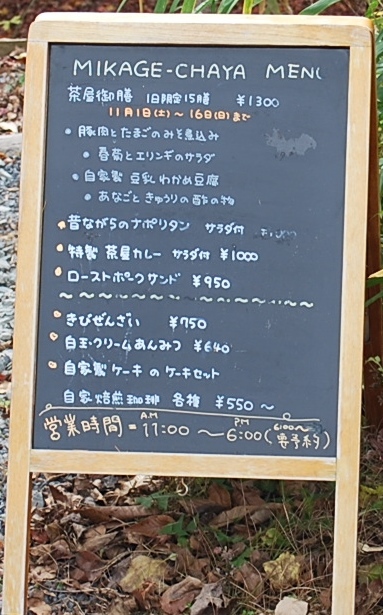 MIKAGE-CHAYA MENU
茶屋御膳 1日限定15膳 ¥1300
11月1日(土)~16日(日)まで
• 豚肉とたまごのみそ煮込み
• 春菊とエリンギのサラダ
• 自家製 豆乳わかめ豆腐
• あなごときゅうりの酢の物
• 昔ながらのナポリタン サラダ付
• 特製 茶屋カレー サラダ付 ¥1000
• ローストポークサンド ¥950
• きびぜんざい ¥750
• 白玉・クリームあんみつ ¥640
• 自家製 ケーキ の ケーキセット
自家焙煎珈琲 各種 ¥550~
営業時間=A.M 11:00~P.M 6:00(6:00~要予約)